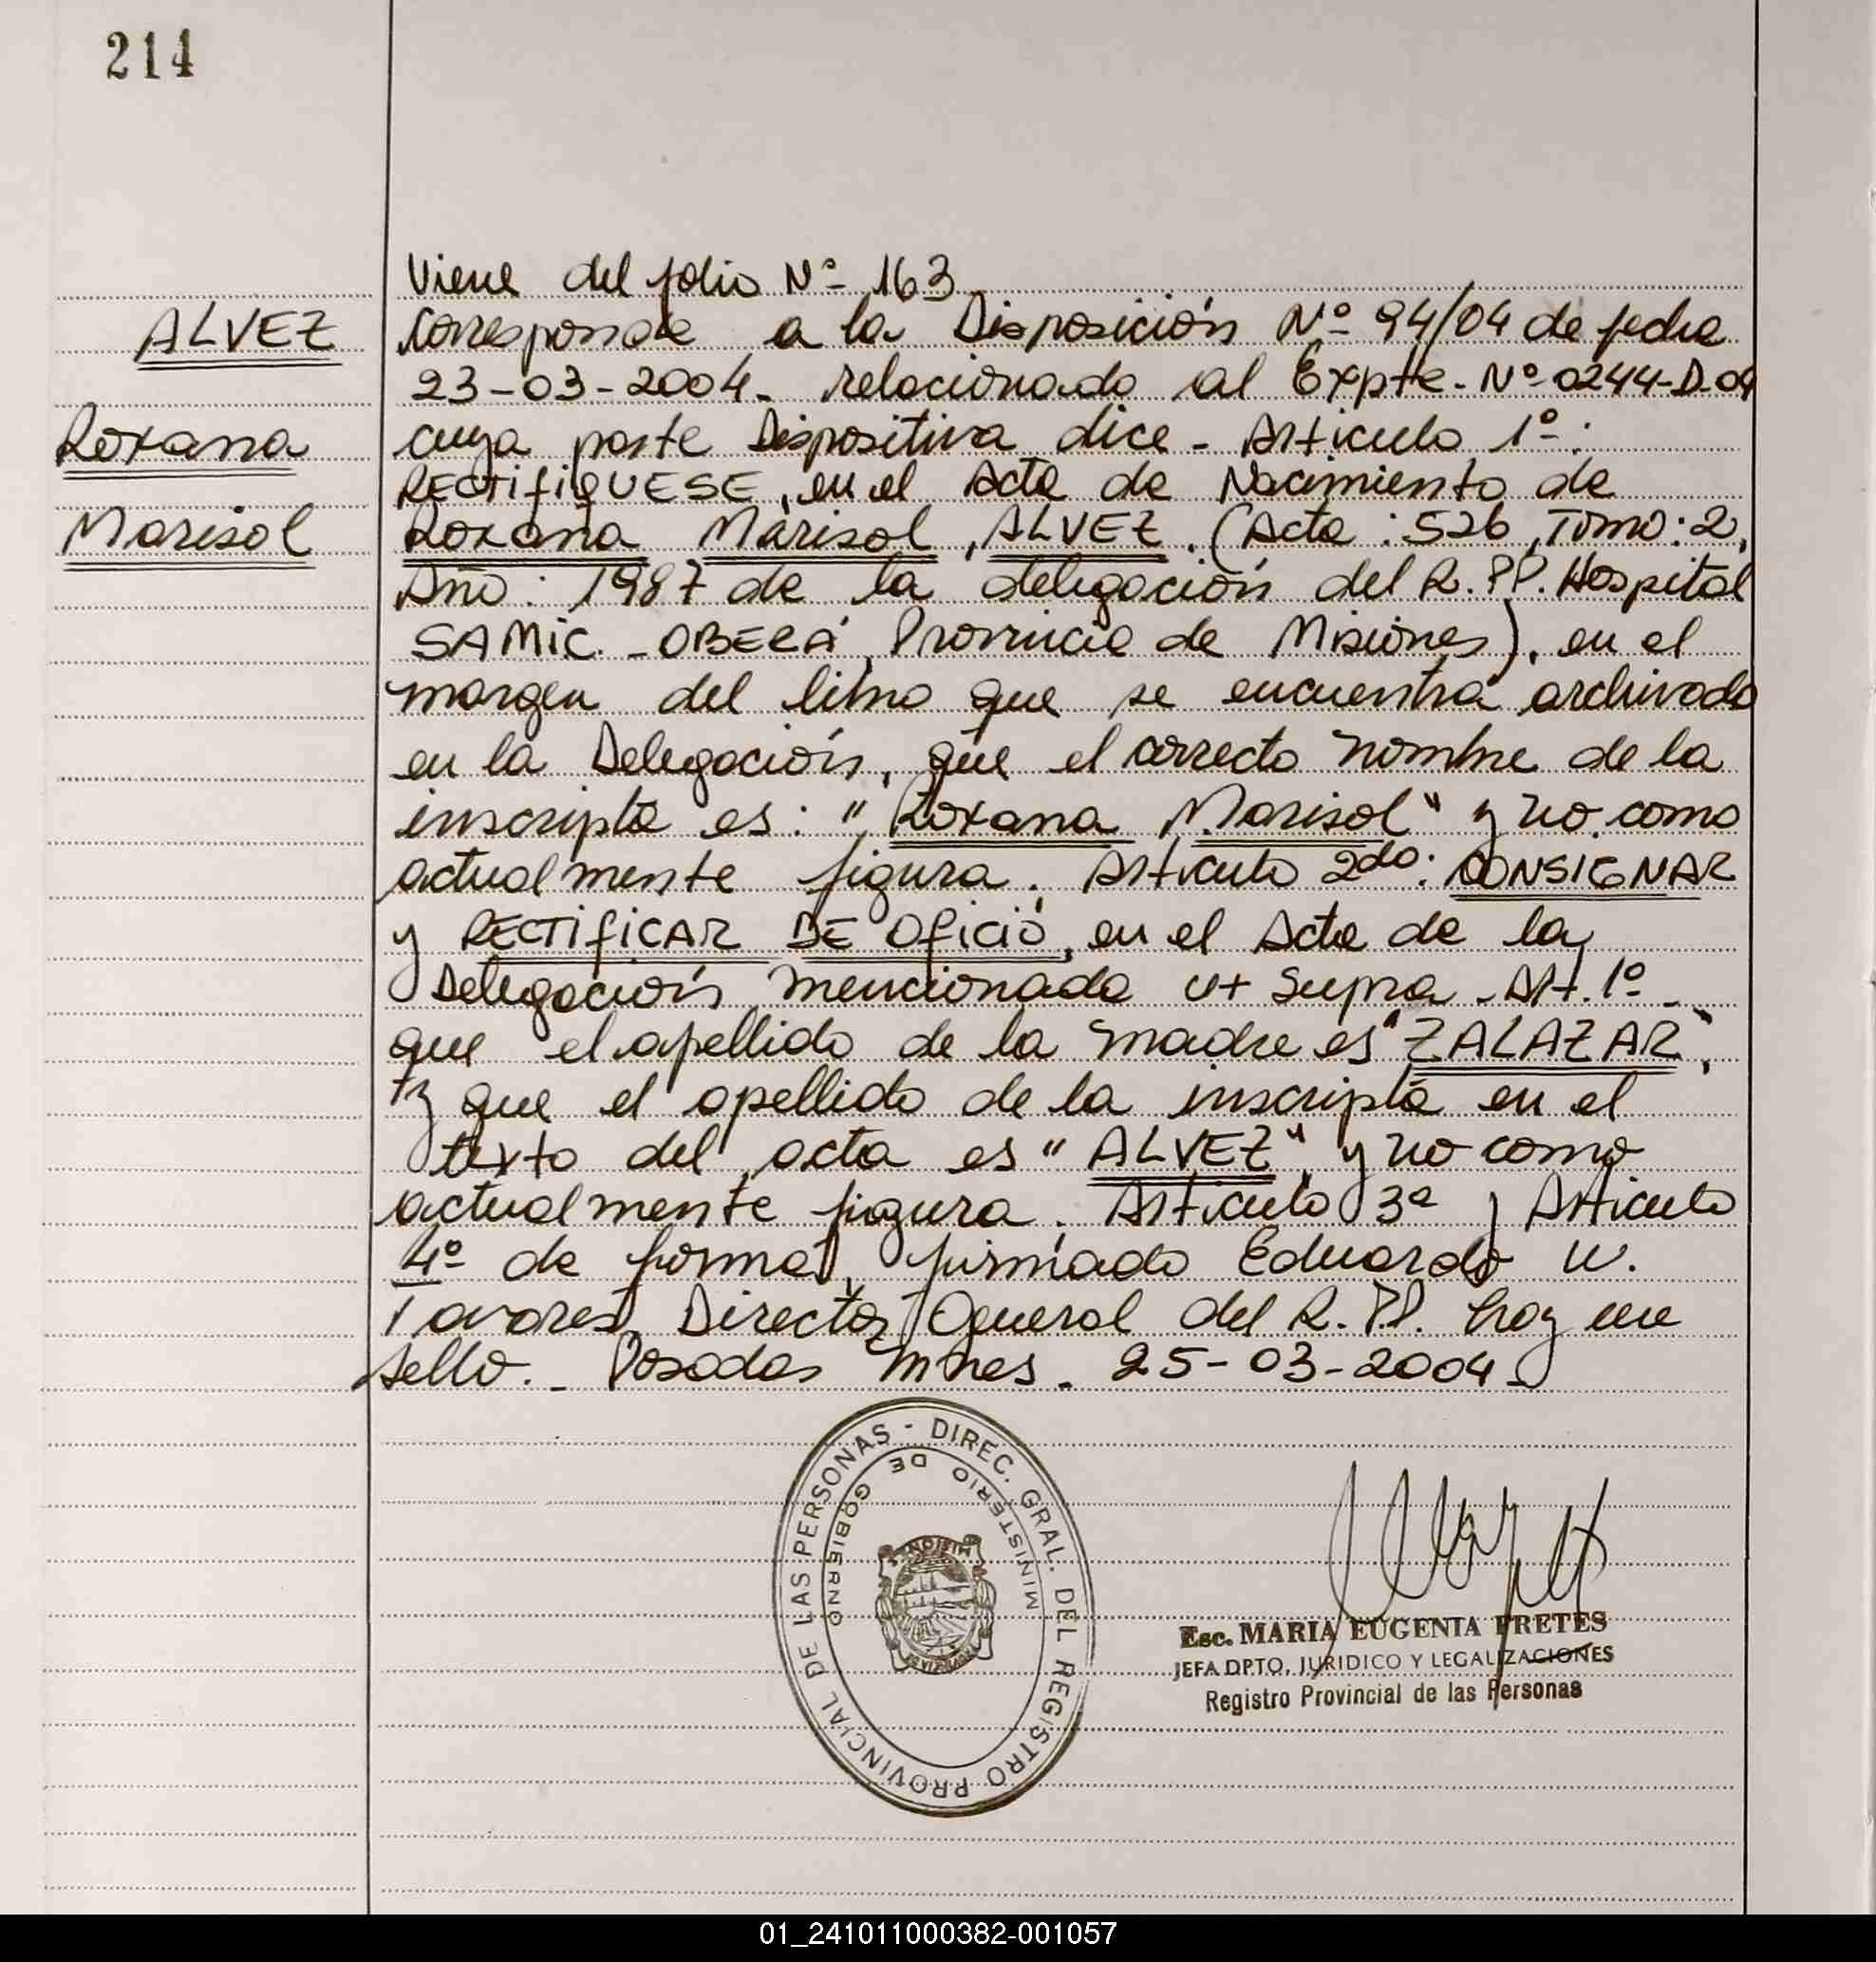 214
Viene del folio Nº 163
ALVEZ
Corresponde a la Disposición Nº 94/04 de fecha
23-03-2004. relacionado al Expte. Nº 0244-D-04
Roxana
cuya parte Dispositiva dice - Articulo 1º:
RECTIFIQUESE, en el Acta de Nacimiento de
Marisol
Roxana Marisol, ALVEZ. (Acta: 526, Tomo: 2,
Año: 1987 de la delegación del R.PP. Hospital
SAMIC. - OBERÁ, Provincia de Misiones), en el
margen del libro que se encuentra archivado
en la Delegación, que el correcto nombre de la
inscripta es: "Roxana Marisol" y no como
actualmente figura. Articulo 2do: CONSIGNAR
y RECTIFICAR DE OFICIO, en el Acta de la
Delegación mencionada ut Supra - Art. 1º -
que el apellido de la madre es "ZALAZAR",
y que el apellido de la inscripta en el
texto del acta es "ALVEZ" y no como
actualmente figura. Articulo 3º y Articulo
4º de forma, firmado Eduardo W.
Tavares Director General del R.PP. hay un
sello. - Posadas Mnes. 25-03-2004.
DIREC. GRAL. DEL REGISTRO PROVINCIAL DE LAS PERSONAS -
MINISTERIO DE GOBIERNO
Esc. MARIA EUGENIA FRETES
JEFA DPTO. JURIDICO Y LEGALIZACIONES
Registro Provincial de las Personas
01_241011000382-001057